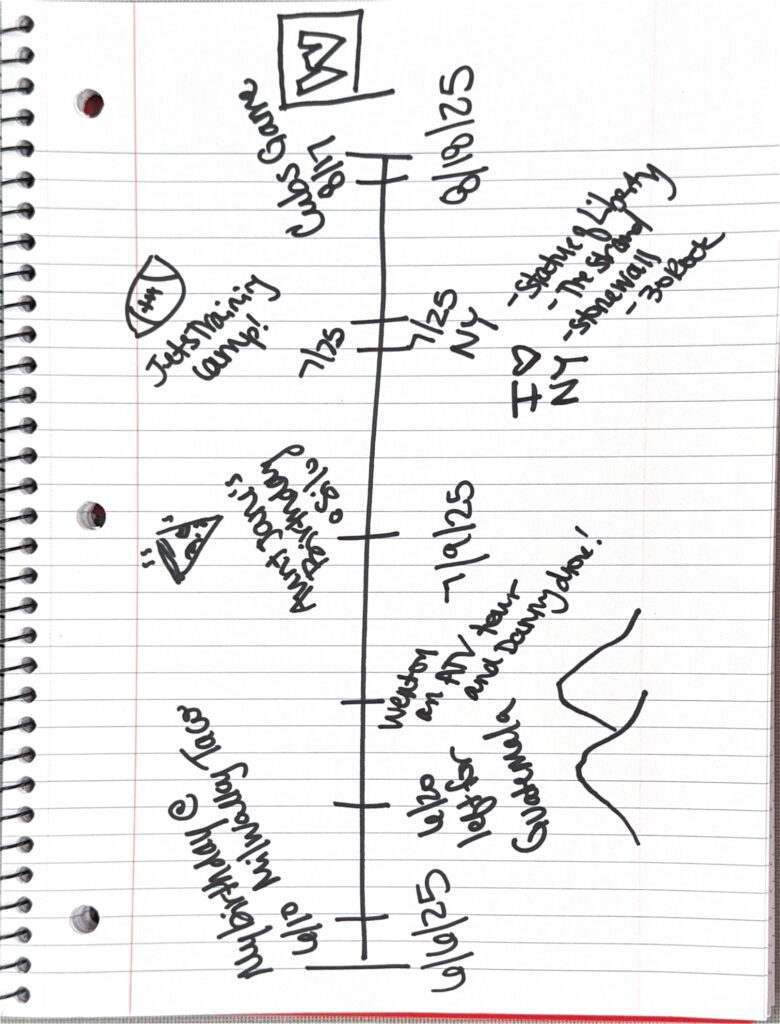 My birthday @
6/10 Milwalky Taco
Aunt Jani's
Birthday
@ Silo
Jets Training
Camp!
7/25
Cubs Game
8/17
6/6/25
6/20
left for
Guatemala
Went on
an ATV tour
and Danny drove!
7/9/25
7/25
NY
I ♡
NY
- Statue of Liberty
- The Strand
- Stonewall
- 30 Rock
8/18/25